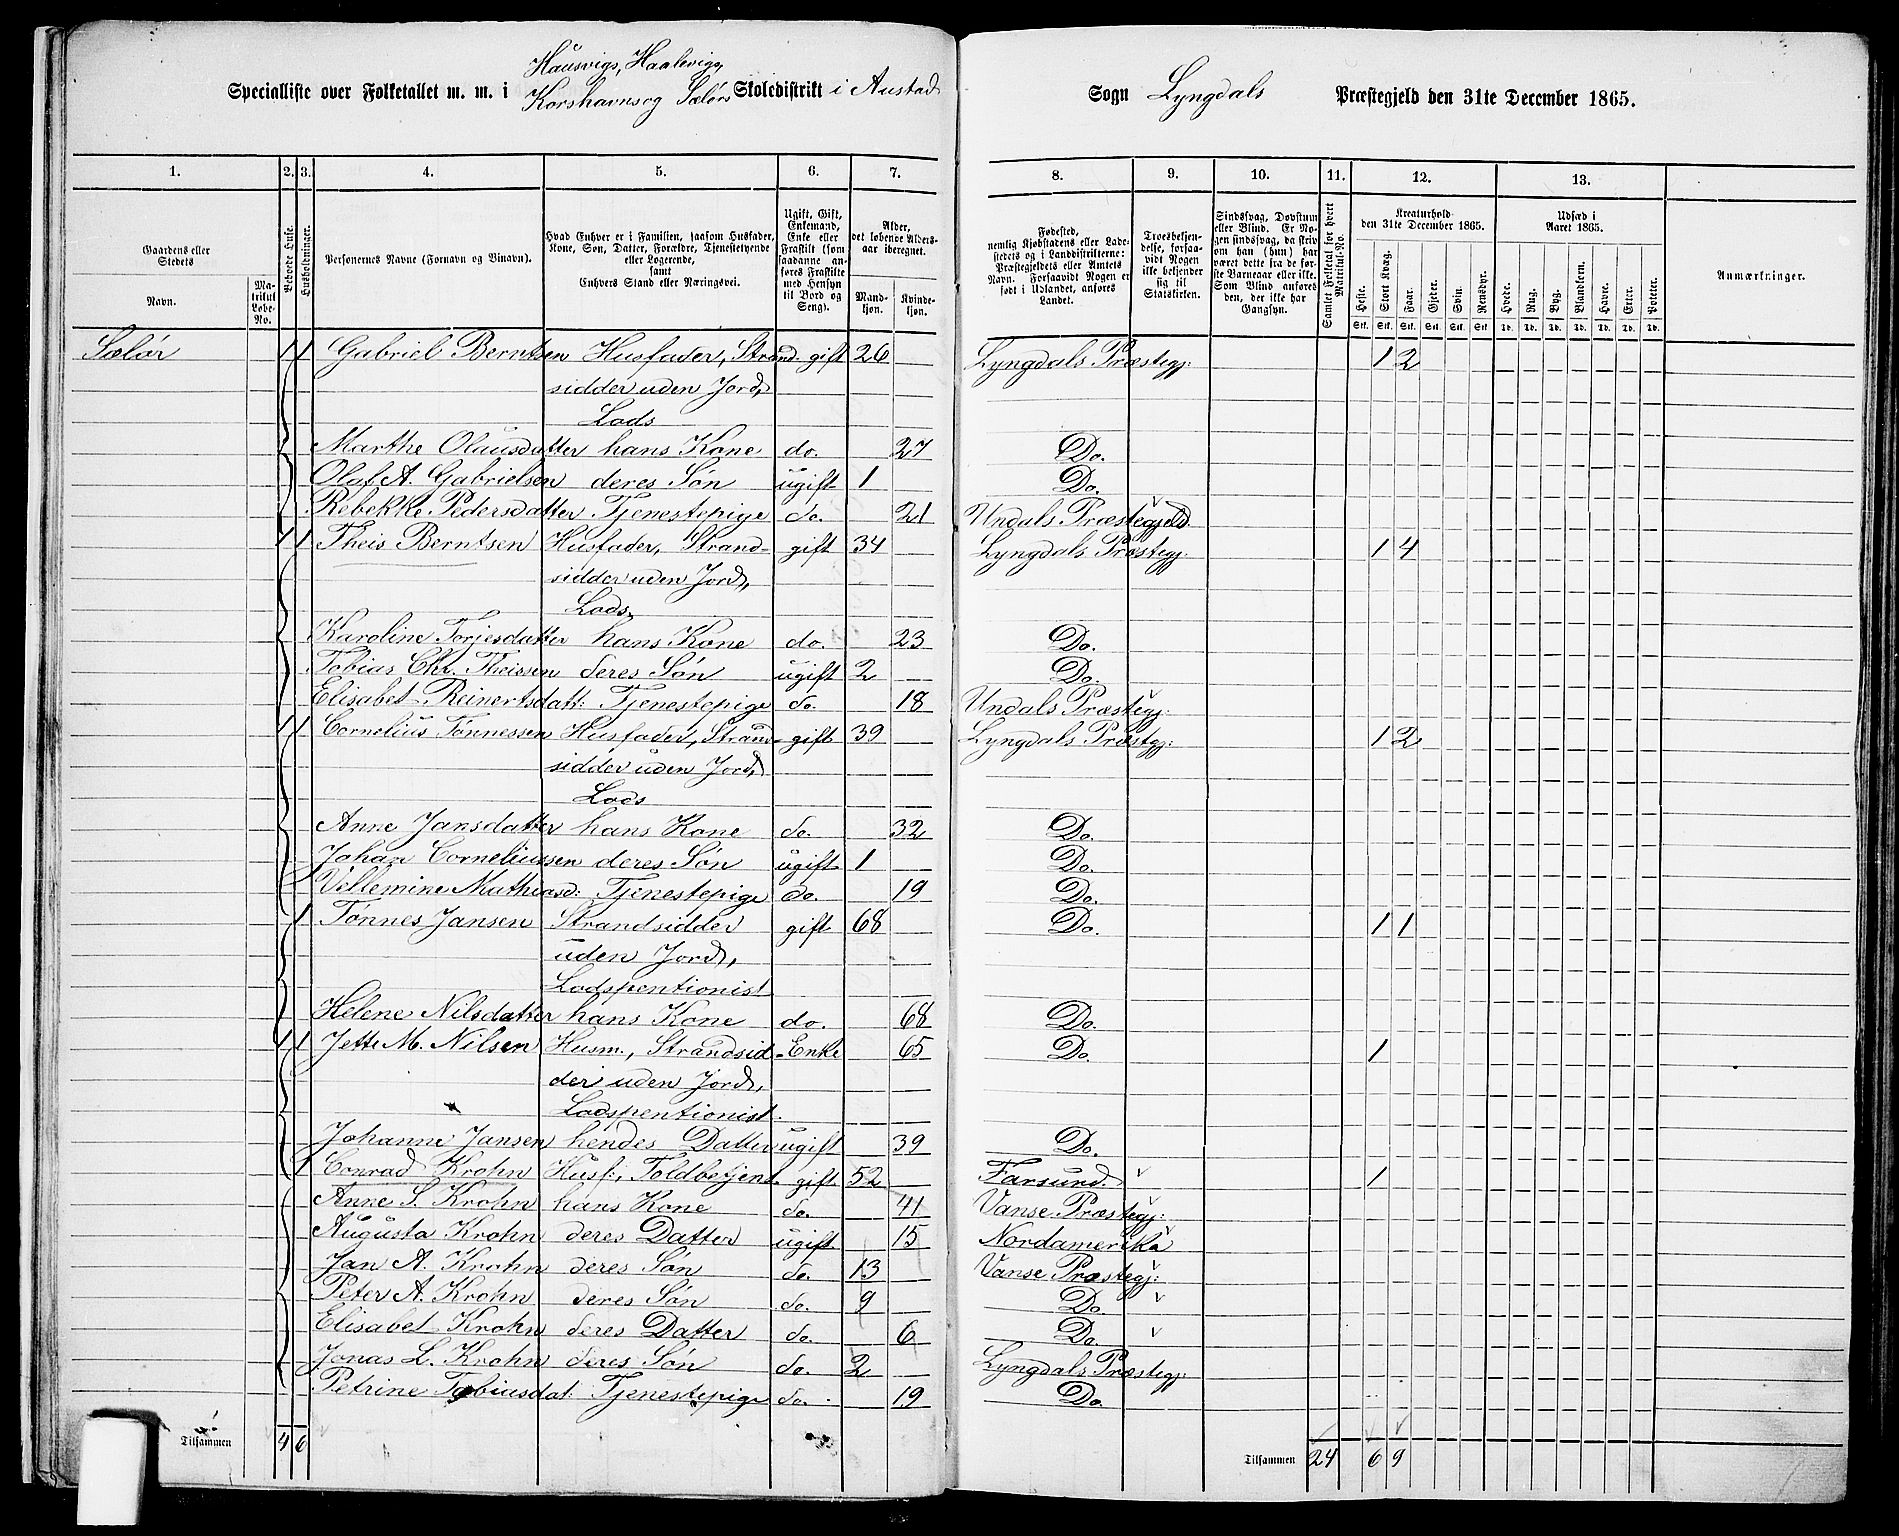 Hausvigs, Haalevigg,
Specialliste over Folketallet m. m. i Korshavns og Sælørs Skoledistrikt i Austad Sogn Lyngdals Præstegjeld den 31te December 1865.
1. 2. 3. 4. 5. 6. 7. 8. 9. 10. 11. 12. 13.
Gaardens eller Stedets
Navn.
Matrikul Løbe-No.
Beboede Huse.
Husholdninger.
Personernes Navne (Fornavn og Binavn).
Hvad Enhver er i Familien, saasom Husfader, Kone, Søn, Datter, Forældre, Tjenestetyende eller Logerende, samt Enhvers Stand eller Næringsvei.
Ugift, Gift, Enkemand, Enke eller Fraskilt (som saadanne anføres Fraskilte med Hensyn til Bord og Seng).
Alder, det løbende Alders-aar iberegnet.
Mandkjøn. Kvindekjøn.
Fødested, nemlig Kjøbstadens eller Ladestedets og i Landdistrikterne: Præstegjeldets eller Amtets Navn. Forsaavidt Nogen er født i Udlandet, anføres Landet.
Troesbekjendelse, forsaavidt Nogen ikke bekjender sig til Statskirken.
Sindssvag, Døvstum eller Blind. Er Nogen sindssvag, da skriv om han (hun) har været dette fra de første Barneaar eller ikke. Som Blind anføres den, der ikke har Gangsyn.
Samlet Folketal for hvert Matrikul-No.
Kreaturhold den 31te December 1865.
Heste. Stort Kvæg. Faar. Gjeder. Svin. Rensdyr.
Udsæd i Aaret 1865.
Hvede. Rug. Byg. Blandkorn. Havre. Erter. Poteter.
Anmærkninger.
Sælør 1 1 Gabriel Berntsen Husfader, Strand- gift 26 Lyngdals Præstegj: 1 2
sidder uden Jord,
Lods
Marthe Olausdatter hans Kone do. 27 Do.
Olaf A. Gabrielsen deres Søn ugift 1 Do.
Rebekke Pedersdatter Tjenestepige do. 21 Undals Præstegjeld
1 1 Theis Berntsen Husfader, Strand- gift 34 Lyngdals Præstegj: 1 4
sidder uden Jord,
Lods,
Karoline Torjesdatter hans Kone do. 23 Do.
Tobius Chr. Theissen deres Søn ugift 2 Do.
Elisabet Reinertsdatt: Tjenestepige do. 18 Undals Præstegj:
1 1 Cornelius Tønnessen Husfader, Strand- gift 39 Lyngdals Præstegj: 1 2
sidder uden Jord,
Lods
Anne Jansdatter hans Kone do. 32 Do.
Johan Corneliussen deres Søn ugift 1 Do.
Villemine Mathiasd: Tjenestepige do. 19 Do.
1 Tønnes Jansen Strandsidder gift 68 Do. 1 1
uden Jord,
Lodspentionist
Helene Nilsdatter hans Kone do. 68 Do.
1 1 Jette M. Nilsen Husm., Strandsid- Enke 65 Do. 1
der uden Jord,
Lodspentionist.
Johanne Jansen hendes Datter ugift 39 Do.
1 Conrad Krohn Husf:, Toldbetjent gift 52 Farsund. 1
Anne S. Krohn hans Kone do. 41 Vanse Præstegj:
Augusta Krohn deres Datter ugift 15 Nordamerika
Jan A. Krohn deres Søn do. 13 Vanse Præstegj:
Peter A. Krohn deres Søn do. 9 Do.
Elisabet Krohn deres Datter do. 6 Do.
Jonas L. Krohn deres Søn do. 2 Lyngdals Præstegj:
Petrine Tobiusdat: Tjenestepige do. 19 Do.
Tilsammen 4 6 Tilsammen 24 6 9